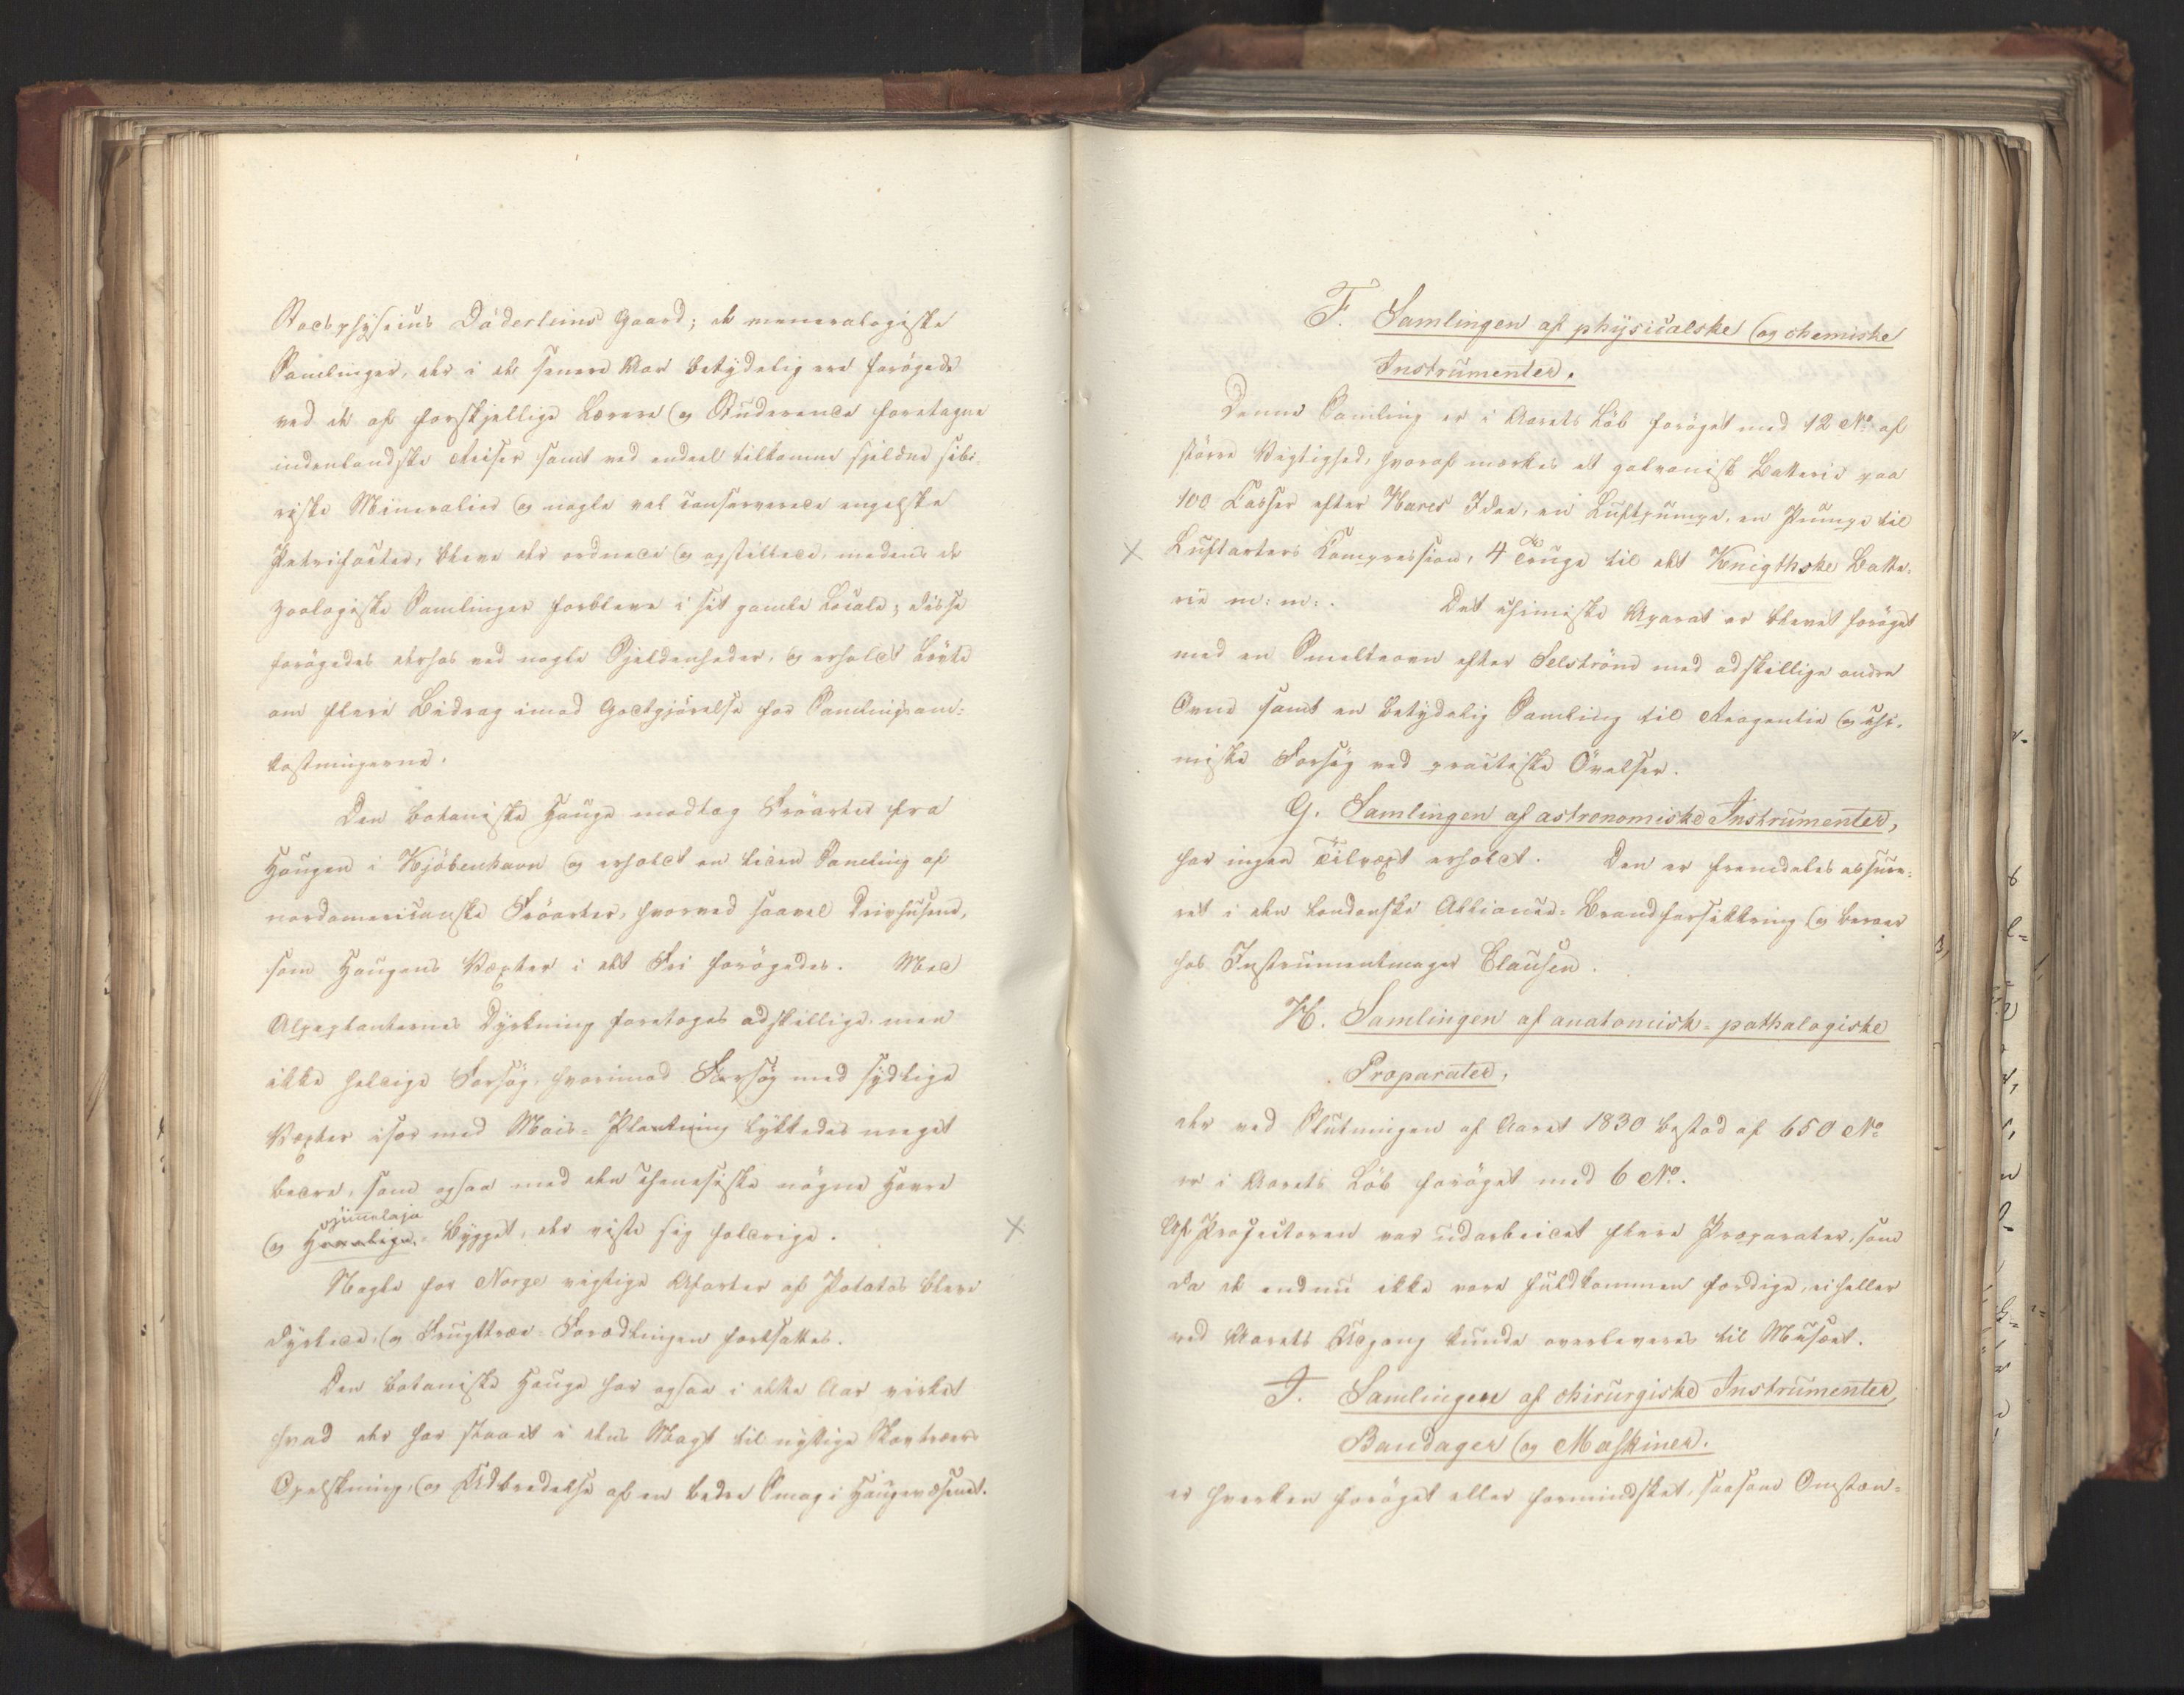 Stadsphysicus Döderleins Gaard; de mineralogiske
Samlinger, der i de senere Aar betydelig ere forøgede
ved de af forskjellige Lærere og Studerende foretagne
indenlandske Reiser samt ved endeel tilkomne sjeldne sibi-
riske Mineralier og nogle vel conserverede engelske
Petrifacter, bleve der ordnede og opstillede, medens de
zoologiske Samlinger forbleve i sit gamle Locale; disse
forøgedes derhos ved nogle Sjeldenheder, og erholdt Løvte
om flere Bidrag imod Godtgjörelse for Samlingsom-
kostningerne.
Den botaniske Hauge modtog Fröarter fra
Haugen i Kjöbenhavn og erholdt en liden Samling af
nordamericanske Fröarter, hvorved saavel Drivhusene,
som Haugens Væxter i det Fri forögedes. Med
Alpeplanternes Dyrkning foretoges adskillige, men
ikke heldige Forsög, hvorimod Forsög med sydlige
Væxter især med Mais-Plantning lykkedes meget
bedre, som ogsaa med den chinesiske nögne Havre
Himelaja
og Havalige- Bygget, der viste sig holdrige. ×
Nogle for Norge vigtige Afarter af Potatos bleve
dyrkede, og Frugttræe-Forædlingen fortsattes.
Den botaniske Hauge har ogsaa i dette Aar virket
hvad der har staaet i dens Magt til nyttige Skovtræers
Opelskning, og Udbredelse af en bedre Smag i Haugevæsenet.
F. Samlingen af physicalske og chemiske
Instrumenter.
Denne Samling er i Aarets Löb foröget med 12 No af
större Vigtighed, hvoraf mærkes et galvanisk Batterie paa
100 Casser efter Hares Idee, en Luftpumpe, en Pumpe til
× Luftarters Compression, 4 Truge til det Knigthske Batte-
rie m: m:. Det chimiske Aparat er blevet foröget
med en Smelteovn efter Selström med adskillige andre
Ovne samt en betydelig Samling til Reagentier og chi-
miske Forsög ved practiske Övelser.
G. Samlingen af astronomiske Instrumenter,
har ingen Tilvæxt erholdt. Den er fremdeles assure-
ret i den Londonske Alliance-Brandforsikkring og beroer
hos Instrumentmager Clausen.
H. Samlingen af anatomisk-pathalogiske
Præparater,
der ved Slutningen af Aaret 1830 bestod af 650 No
er i Aarets Löb foröget med 6 No.
Af Prosectoren var udarbeidet flere Præparater, som
da de endnu ikke vare fuldkommen færdige, ei heller
ved Aarets Udgang kunde overleveres til Musæet.
I. Samlingen af chirurgiske Instrumenter,
Bandager og Maskiner.
er hverken foröget eller formindsket, saasom Omstæn-